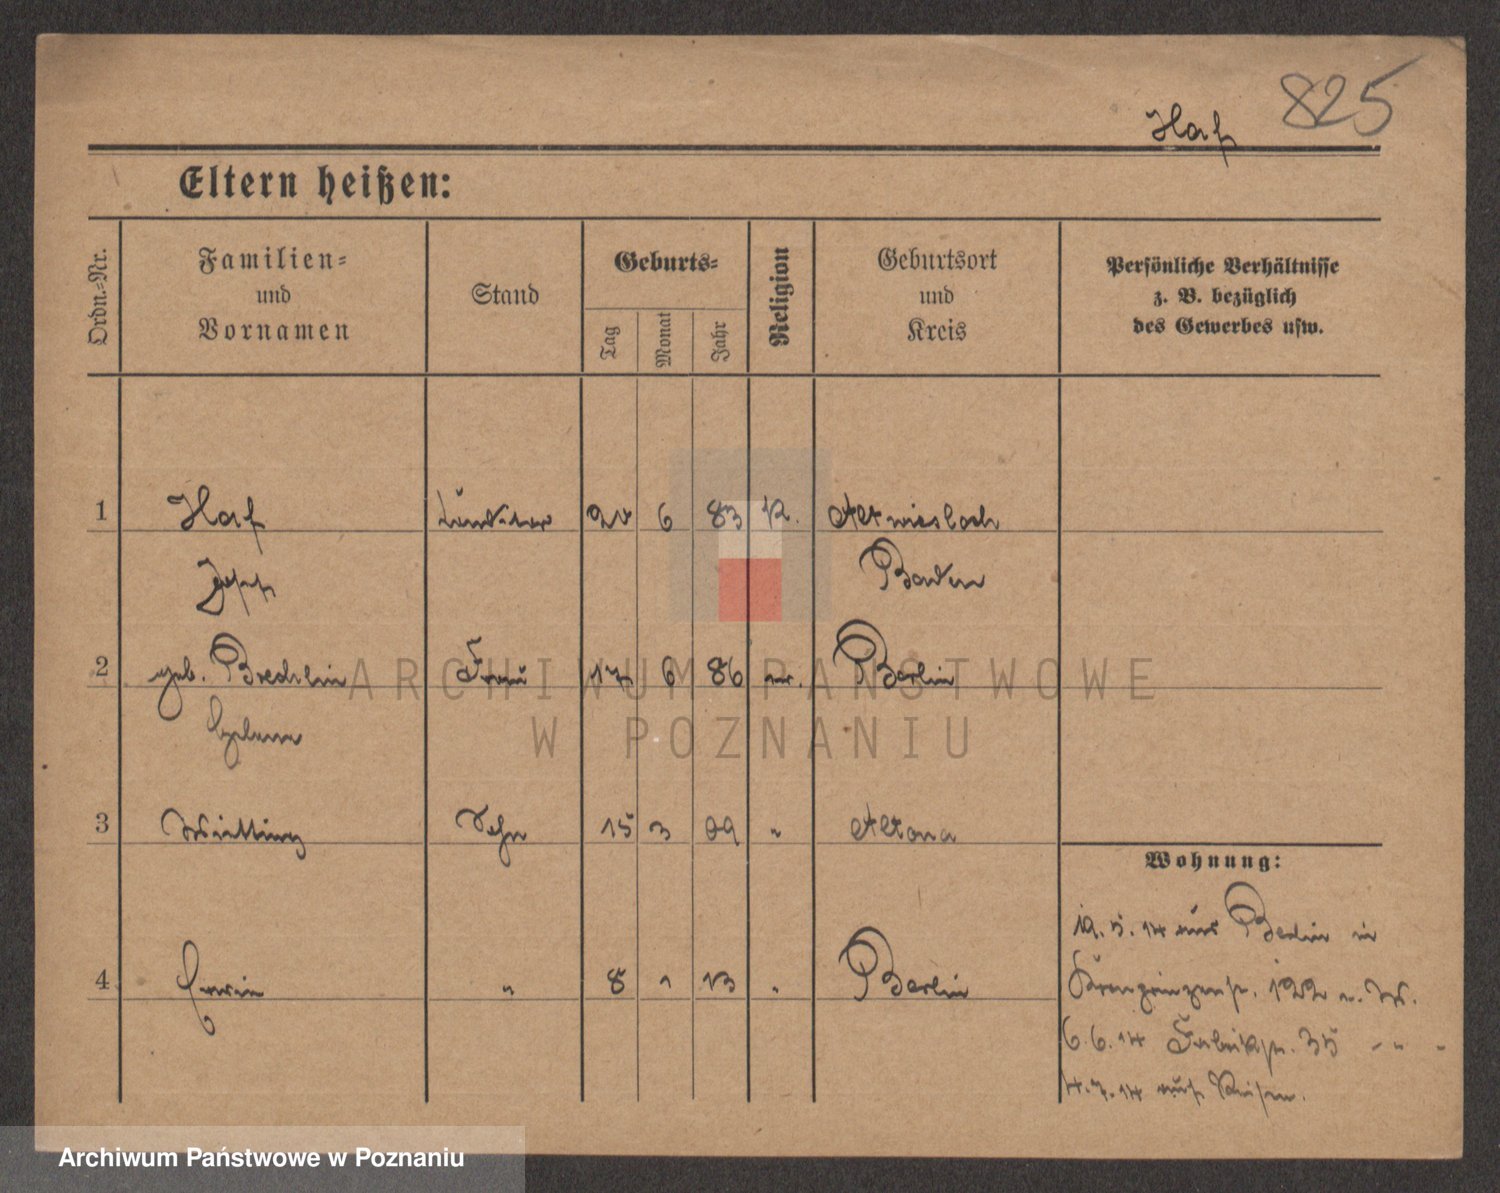 825
Haf
Eltern heißen:
Ordn.-Nr.
Familien- und Vornamen
Stand
Geburts-
Tag
Monat
Jahr
Religion
Geburtsort und Kreis
Persönliche Verhältnisse z. B. bezüglich des Gewerbes usw.
1 Haf 6 83 K. Altwiesloch
Josef Baden
2 geb. Brechlin Frau 17 6 86 ev. Berlin
Helene
3 Sohn 15 3 09 " Altona
Wohnung:
19. 5. 14 aus Berlin in
4 Erwin " 8 1 13 " Berlin
Kronprinzenstr. 122 n. W.
6. 6. 14 Fabrikstr. 35 " " "
4. 7. 14 auf Reisen.
ARCHIWUM PAŃSTWOWE
W POZNANIU
Archiwum Państwowe w Poznaniu